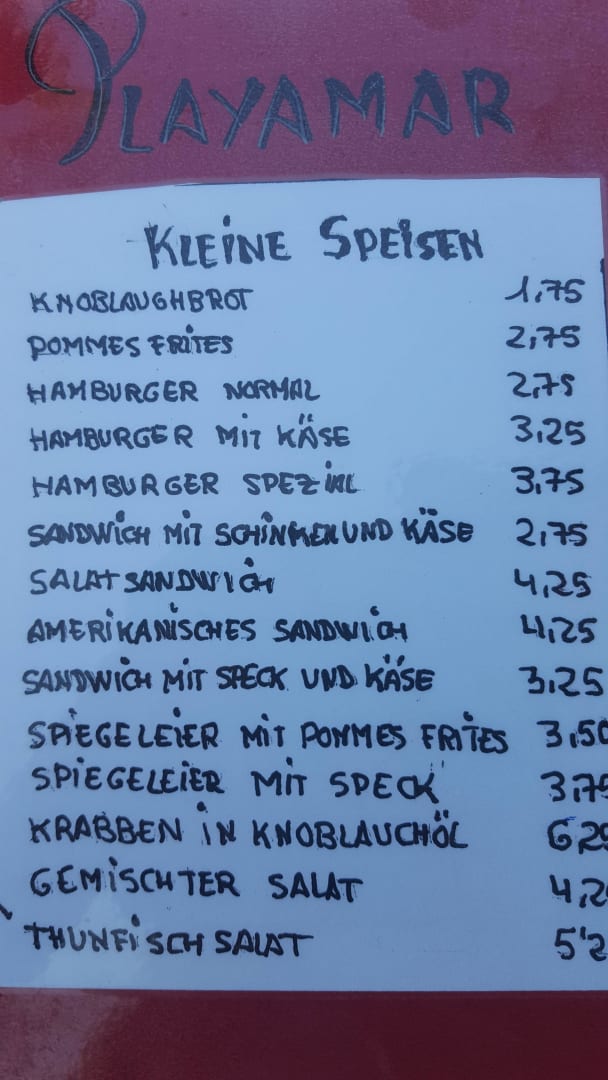 PLAYAMAR
KLEINE SPEISEN
KNOBLAUGHBROT 1,75
POMMES FRITES 2,75
HAMBURGER NORMAL 2,75
HAMBURGER MIT KÄSE 3,25
HAMBURGER SPEZIAL 3,75
SANDWICH MIT SCHINKEN UND KÄSE 2,75
SALATSANDWICH 4,25
AMERIKANISCHES SANDWICH 4,25
SANDWICH MIT SPECK UND KÄSE 3,25
SPIEGELEIER MIT POMMES FRITES 3,50
SPIEGELEIER MIT SPECK 3,75
KRABBEN IN KNOBLAUCHÖL
GEMISCHTER SALAT
THUNFISCH SALAT